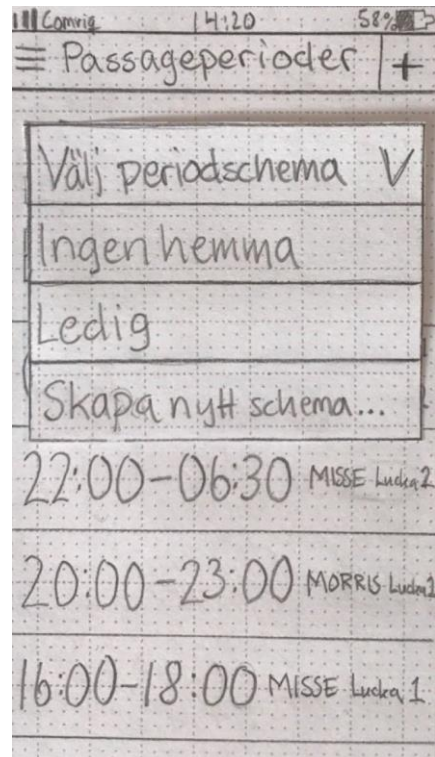 Comviq 14:20 58%
Passageperioder +
Välj periodschema V
Ingen hemma
Ledig
Skapa nytt schema...
22:00-06:30 MISSE Lucka 2
20:00-23:00 MORRIS Lucka 1
16:00-18:00 MISSE Lucka 1